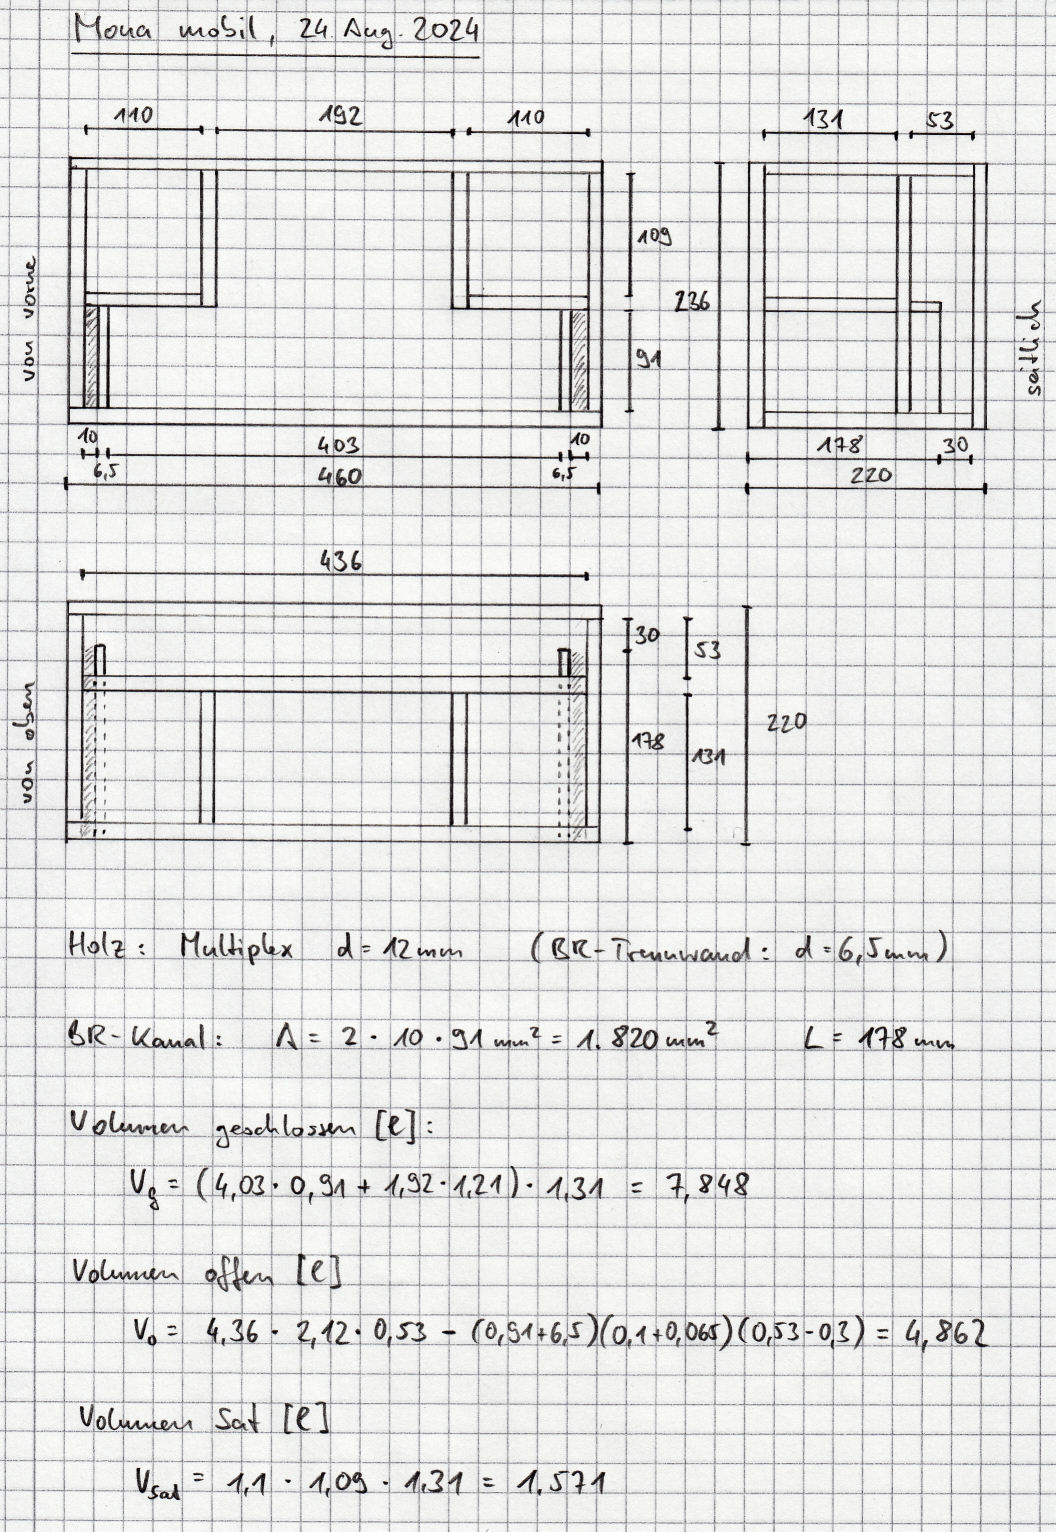 Mona mobil, 24. Aug. 2024
110 192 110 131 53
von vorne
109
236
91
seitlich
10 403 10 178 30
6,5 6,5
460 220
436
von oben
30
53
220
178
131
Holz: Multiplex d = 12 mm (BR-Trennwand: d = 6,5 mm)
BR-Kanal: A = 2 · 10 · 91 mm² = 1.820 mm² L = 178 mm
Volumen geschlossen [l]:
Vg = (4,03 · 0,91 + 1,92 · 1,21) · 1,31 = 7,848
Volumen offen [l]
Vo = 4,36 · 2,12 · 0,53 - (0,91+6,5)(0,1+0,065)(0,53-0,3) = 4,862
Volumen Sat [l]
Vsat = 1,1 · 1,09 · 1,31 = 1,571